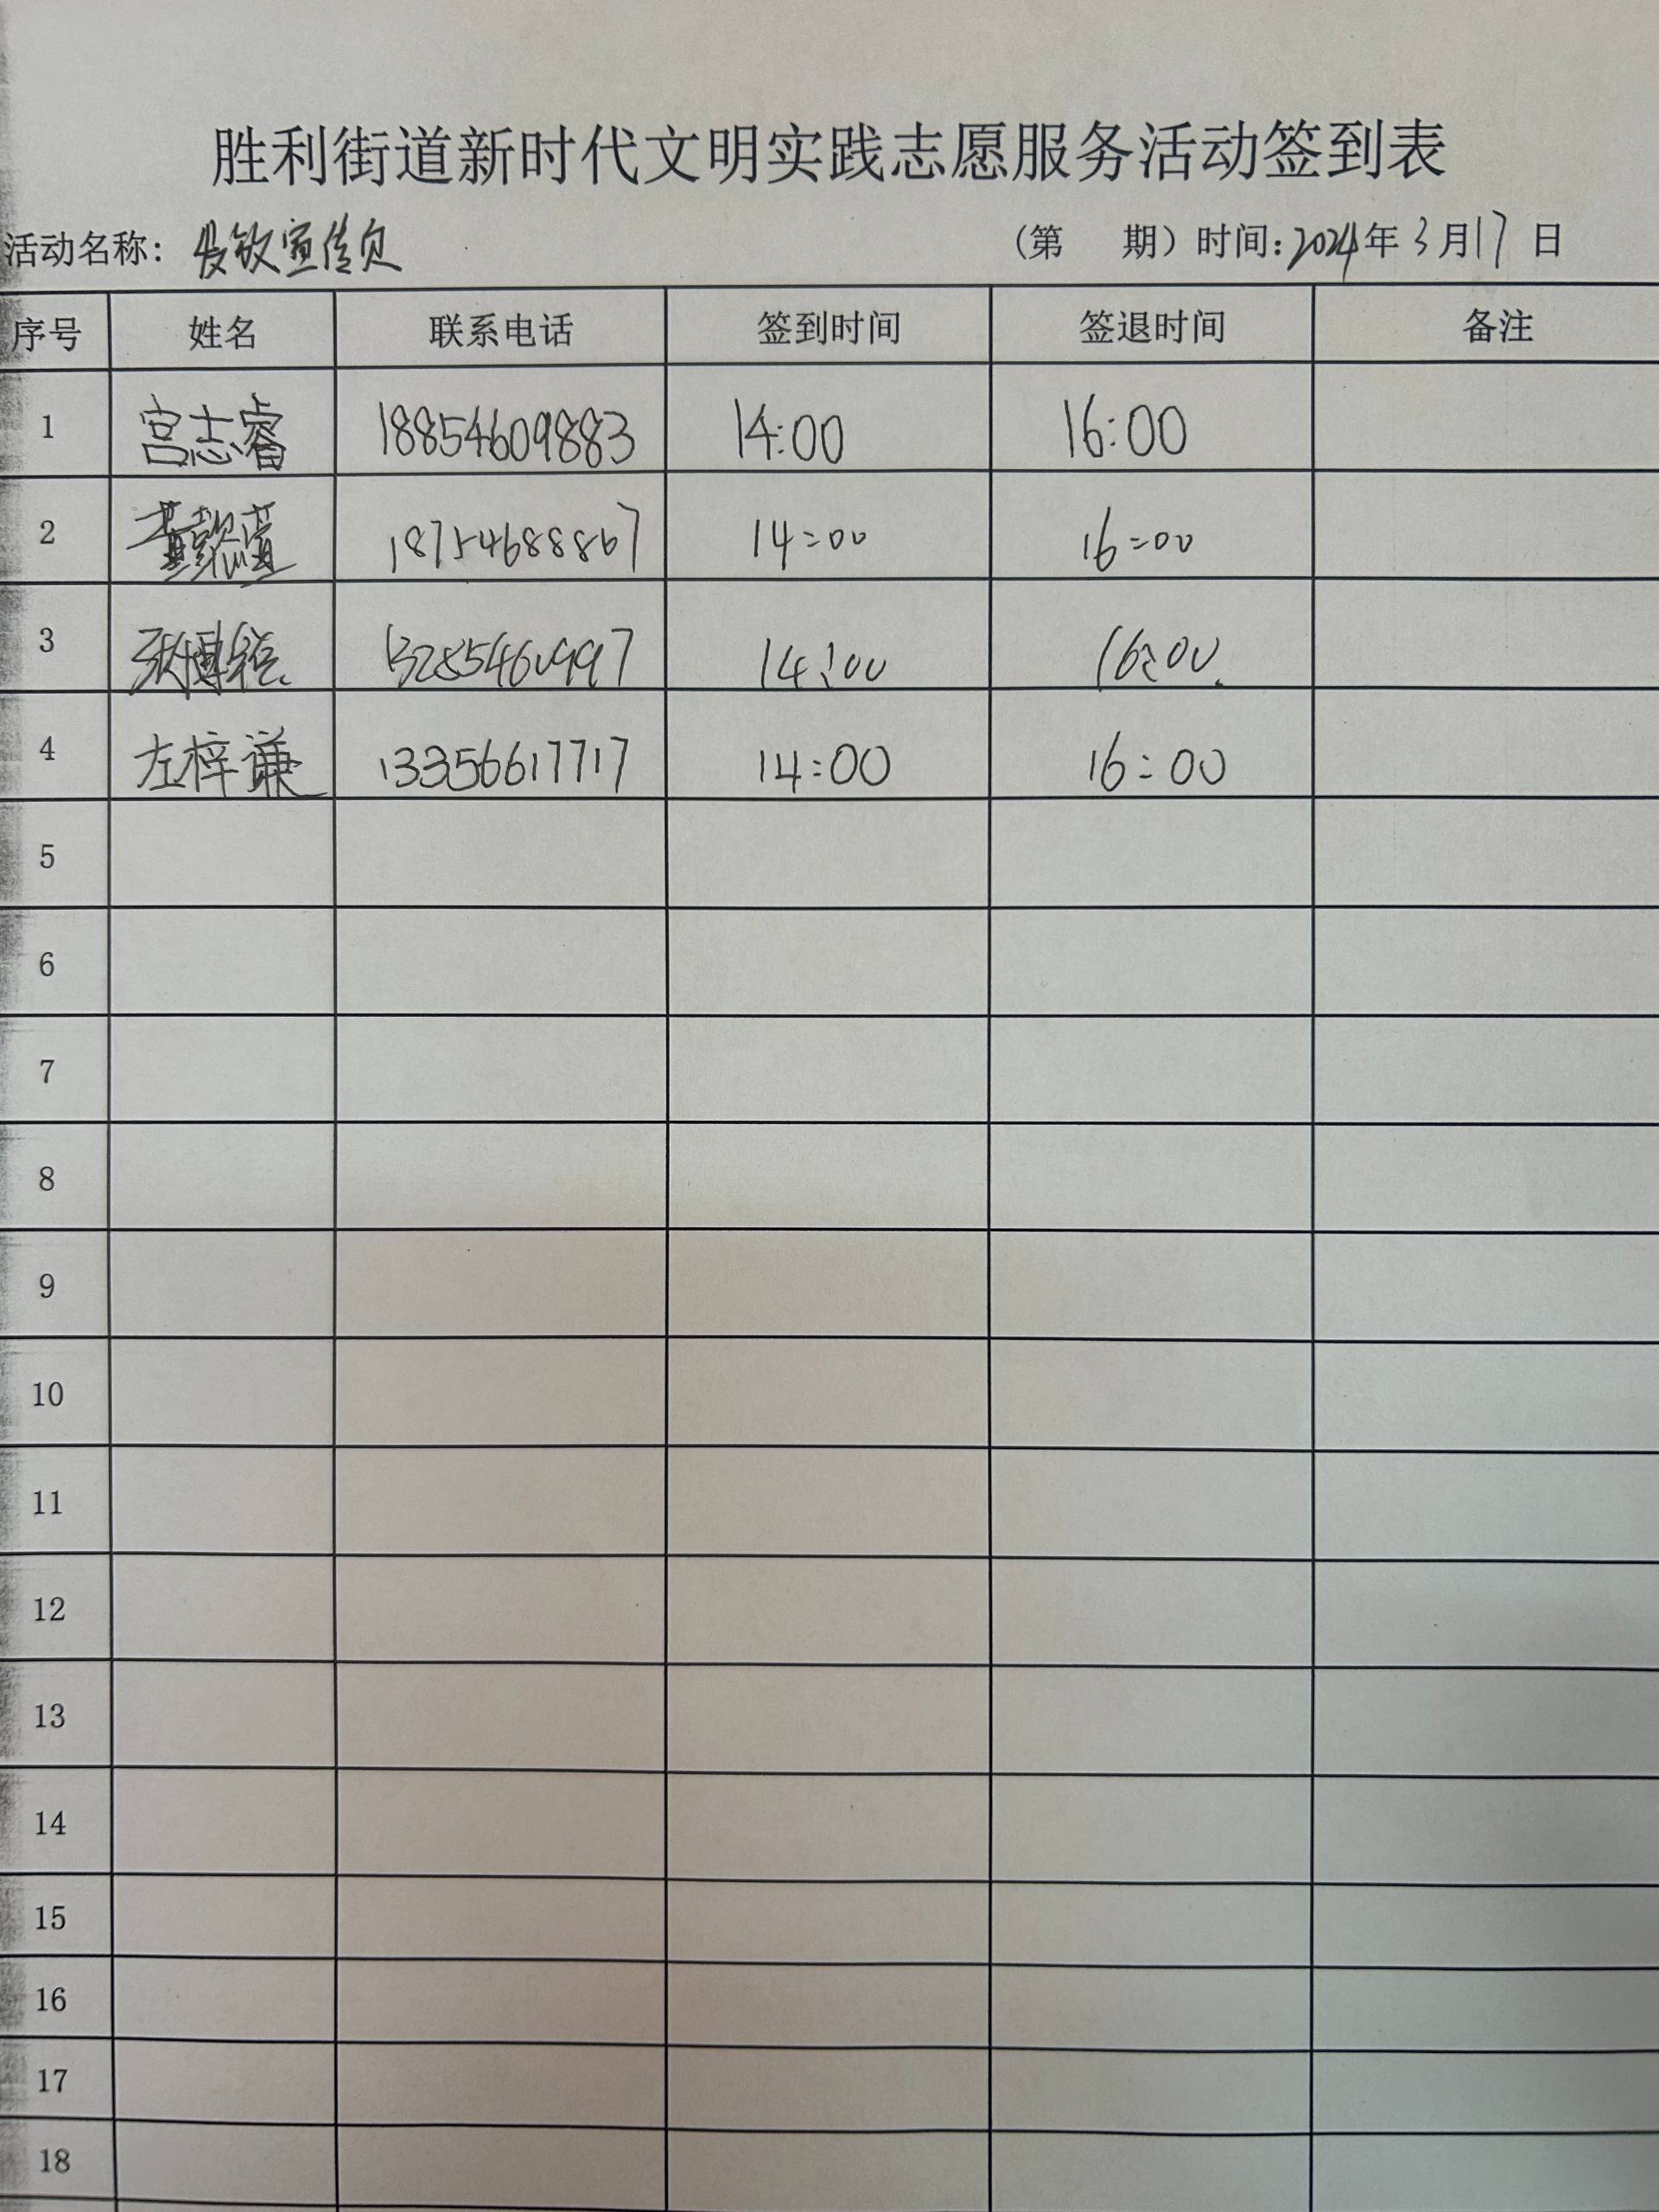 胜利街道新时代文明实践志愿服务活动签到表
活动名称： 发放宣传页 （第 期）时间：2024年3月17日
序号 姓名 联系电话 签到时间 签退时间 备注
1 宫志睿 18854609883 14:00 16:00
2 18754688867 14:00 16:00
3 张博 14:00 16:00
4 左梓谦 13356617717 14:00 16:00
5
6
7
8
9
10
11
12
13
14
15
16
17
18